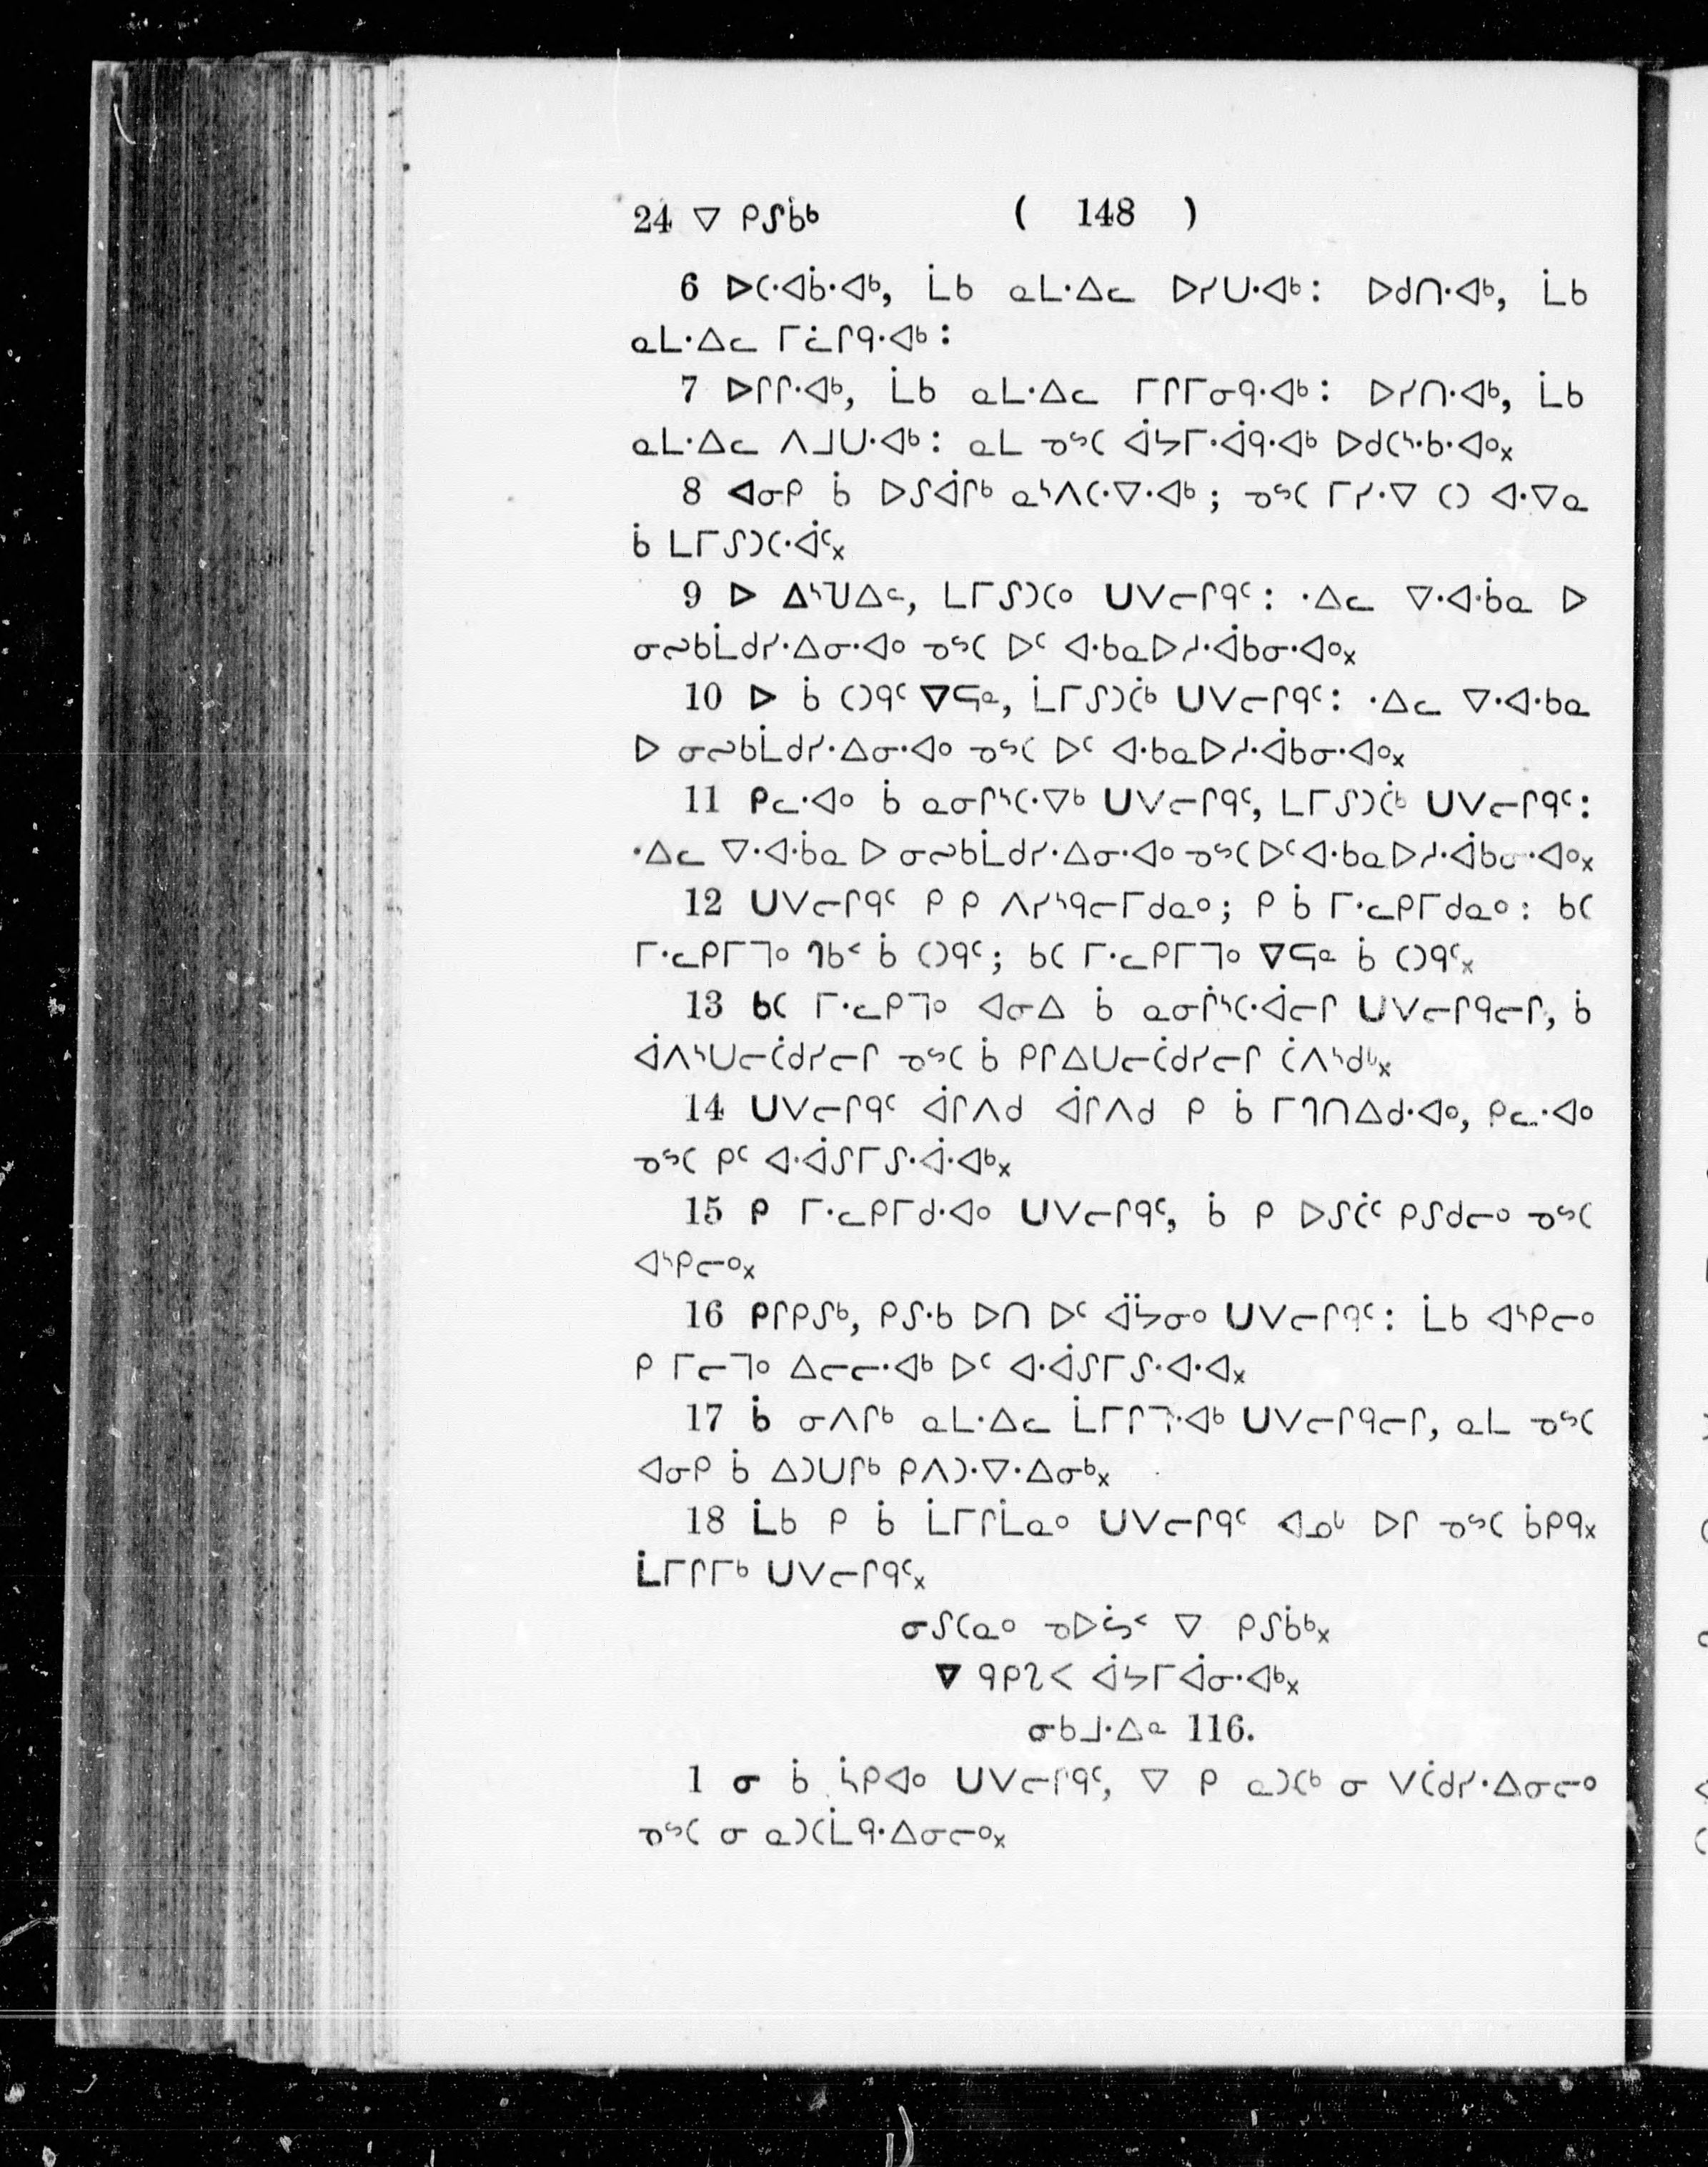 24 ᐁ ᑭᔑᑳᒃ ( 148 )
6 ᐅᑕᐧᐊᑳᐧᐊᒃ, ᒫᑲ ᓇᒪᐧᐃᓚ ᐅᓯᑌᐧᐊᒃ: ᐅᑯᑎᐧᐊᒃ, ᒫᑲ
ᓇᒪᐧᐃᓚ ᒥᓛᒋᑫᐧᐊᒃ:
7 ᐅᒋᒋᐧᐊᒃ, ᒫᑲ ᓇᒪᐧᐃᓚ ᒥᒋᒥᓂᑫᐧᐊᒃ: ᐅᓯᑎᐧᐊᒃ, ᒫᑲ
ᓇᒪᐧᐃᓚ ᐱᒧᑌᐧᐊᒃ: ᓇᒪ ᓀᔥᑕ ᐋᔭᒥᐧᐋᑫᐧᐊᒃ ᐅᑯᑕᔅᐧᑲᐧᐊᐤ᙮
8 ᐊᓂᑭ ᑳ ᐅᔑᐋᒋᒃ ᓇᔅᐱᑕᐧᐁᐧᐊᒃ; ᓀᔥᑕ ᒥᓯᐧᐁ ᑕᑐ ᐊᐧᐁᓇ
ᑳ ᒪᒥᔑᑐᑕᐧᐋᑦ᙮
9 ᐅ ᐃᔅᒉᐃᓪ, ᒪᒥᔑᑐᑕᐤ ᑌᐯᓕᒋᑫᑦ: ᐧᐃᓚ ᐁᐧᐊᑳᓇ ᐅ
ᓂᔓᑲᒫᑯᓯᐧᐃᓂᐧᐊᐤ ᓀᔥᑕ ᐅᑦ ᐊᐧᑲᓇᐅᓱᐧᐋᑲᓂᐧᐊᐤ᙮
10 ᐅ ᑳ ᑕᑐᑫᑦ ᐁᕋᓐ, ᒫᒥᔑᑐᑖᒃ ᑌᐯᓕᒋᑫᑦ: ᐧᐃᓚ ᐁᐧᐊᐧᑲᓇ
ᐅ ᓂᔓᑲᒫᑯᓯᐧᐃᓂᐧᐊᐤ ᓀᔥᑕ ᐅᑦ ᐊᐧᑲᓇᐅᓱᐧᐋᑲᓂᐧᐊᐤ᙮
11 ᑭᓚᐧᐊᐤ ᑳ ᓇᓂᒋᔅᑕᐧᐁᒃ ᑌᐯᓕᒋᑫᑦ, ᒪᒥᔑᑐᑖᒃ ᑌᐯᓕᒋᑫᑦ:
ᐧᐃᓚ ᐁᐧᐊᑳᓇ ᐅ ᓂᔓᑲᒫᑯᓯᐧᐃᓂᐧᐊᐤ ᓀᔥᑕ ᐅᑦ ᐊᐧᑲᓇᐅᓱᐧᐋᑲᓂᐧᐊᐤ᙮
12 ᑌᐯᓕᒋᑫᑦ ᑭ ᑭ ᐱᓯᔅᑫᓕᒥᑯᓇᐤ; ᑭ ᑳ ᒥᐧᓚᑭᒥᑯᓇᐤ: ᑲᑕ
ᒥᐧᓚᑭᒥᒣᐤ ᒉᑲᑉ ᑳ ᑕᑐᑫᑦ; ᑲᑕ ᒥᐧᓚᑭᒥᒣᐤ ᐁᕋᓐ ᑳ ᑕᑐᑫᑦ᙮
13 ᑲᑕ ᒥᐧᓚᑭᒣᐤ ᐊᓂᐃ ᑳ ᓇᓂᒌᔅᑕᐧᐋᓕᒋ ᑌᐯᓕᒋᑫᓕᒋ, ᑳ
ᐋᐱᔅᑌᓕᑖᑯᓯᓕᒋ ᓀᔥᑕ ᑳ ᑭᒋᐃᑌᓕᑖᑯᓯᓕᒋ ᑖᐱᔅᑯᒡ᙮
14 ᑌᐯᓕᒋᑫᑦ ᐋᒋᐱᑯ ᐋᒋᐱᑯ ᑭ ᑳ ᒥᒉᑎᐃᑯᐧᐊᐤ, ᑭᓚᐧᐊᐤ
ᓀᔥᑕ ᑭᑦ ᐊᐧᐋᔑᒥᔑᐧᐋᐧᐊᒃ᙮
15 ᑭ ᒥᐧᓚᑭᒥᑯᐧᐊᐤ ᑌᐯᓕᒋᑫᑦ, ᑳ ᑭ ᐅᔑᑖᑦ ᑭᔑᑯᓕᐤ ᓀᔥᑕ
ᐊᔅᑭᓕᐤ᙮
16 ᑭᒋᑭᔑᒃ, ᑭᔑᐧᑲ ᐅᑎ ᐅᑦ ᐋᔮᓂᐤ ᑌᐯᓕᒋᑫᑦ: ᒫᑲ ᐊᔅᑭᓕᐤ
ᑭ ᒥᓕᒣᐤ ᐃᓕᓕᐧᐊᒃ ᐅᑦ ᐊᐧᐋᔑᒥᔑᐧᐊᐧᐊ᙮
17 ᑳ ᓂᐱᒋᒃ ᓇᒪᐧᐃᓚ ᒫᒥᒋᒣᐧᐊᒃ ᑌᐯᓕᒋᑫᓕᒋ, ᓇᒪ ᓀᔥᑕ
ᐊᓂᑭ ᑳ ᐃᑐᑌᒋᒃ ᑭᐱᑐᐧᐁᐧᐃᓂᒃ᙮
18 ᒫᑲ ᑭ ᑳ ᒫᒥᒋᒫᓇᐤ ᑌᐯᓕᒋᑫᑦ ᐊᓄᒡ ᐅᒋ ᓀᔥᑕ ᑳᑭᑫ᙮
ᒫᒥᒋᒥᒃ ᑌᐯᓕᒋᑫᑦ᙮
ᓂᔑᑕᓇᐤ ᓀᐅᔖᑉ ᐁ ᑭᔑᑳᒃ᙮
ᐁ ᑫᑭᔐᐸ ᐋᔭᒥᐋᓂᐧᐊᒃ᙮
ᓂᑲᒧᐧᐃᓐ 116.
1 ᓂ ᑳ ᓵᑭᐊᐤ ᑌᐯᓕᒋᑫᑦ, ᐁ ᑭ ᓇᑐᑕᒃ ᓂ ᐯᑖᑯᓯᐧᐃᓂᓕᐤ
ᓀᔥᑕ ᓂ ᓇᑐᑕᒫᑫᐧᐃᓂᓕᐤ᙮